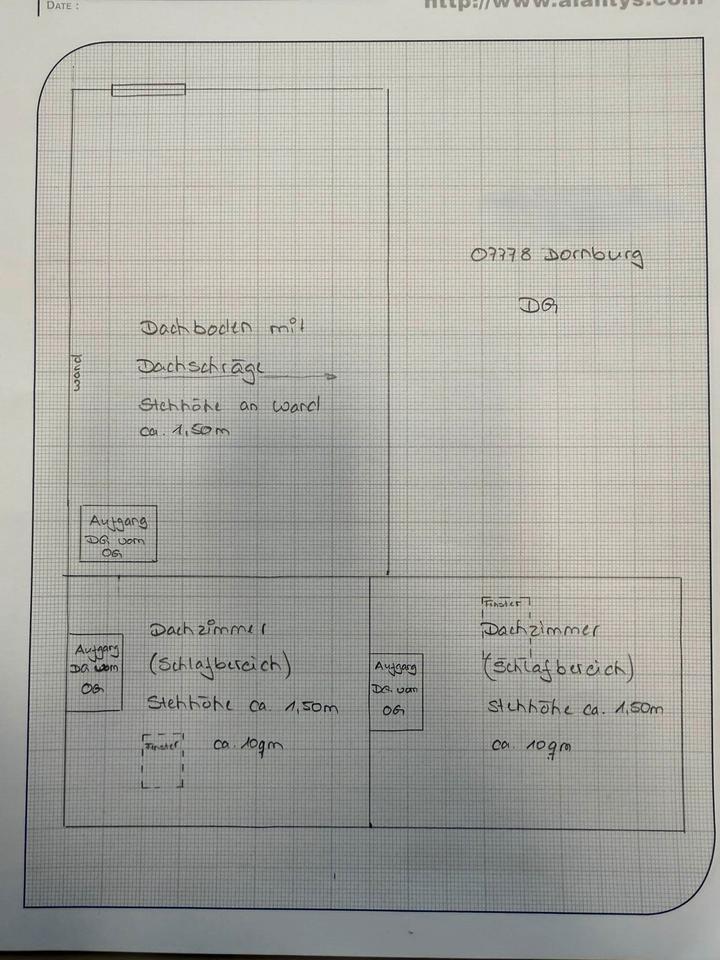 DATE :
http://www.atantys.com
07778 Dornburg
DG
Dachboden mit
Dachschräge
Stehhöhe an Wand
ca. 1,50m
Wand
Aufgang
DG vom
OG
Dachzimmer
(Schlafbereich)
Stehhöhe ca. 1,50m
ca. 10qm
Aufgang
DG vom
OG
Finster
Finster
Dachzimmer
(Schlafbereich)
Stehhöhe ca. 1,50m
ca. 10qm
Aufgang
DG vom
OG